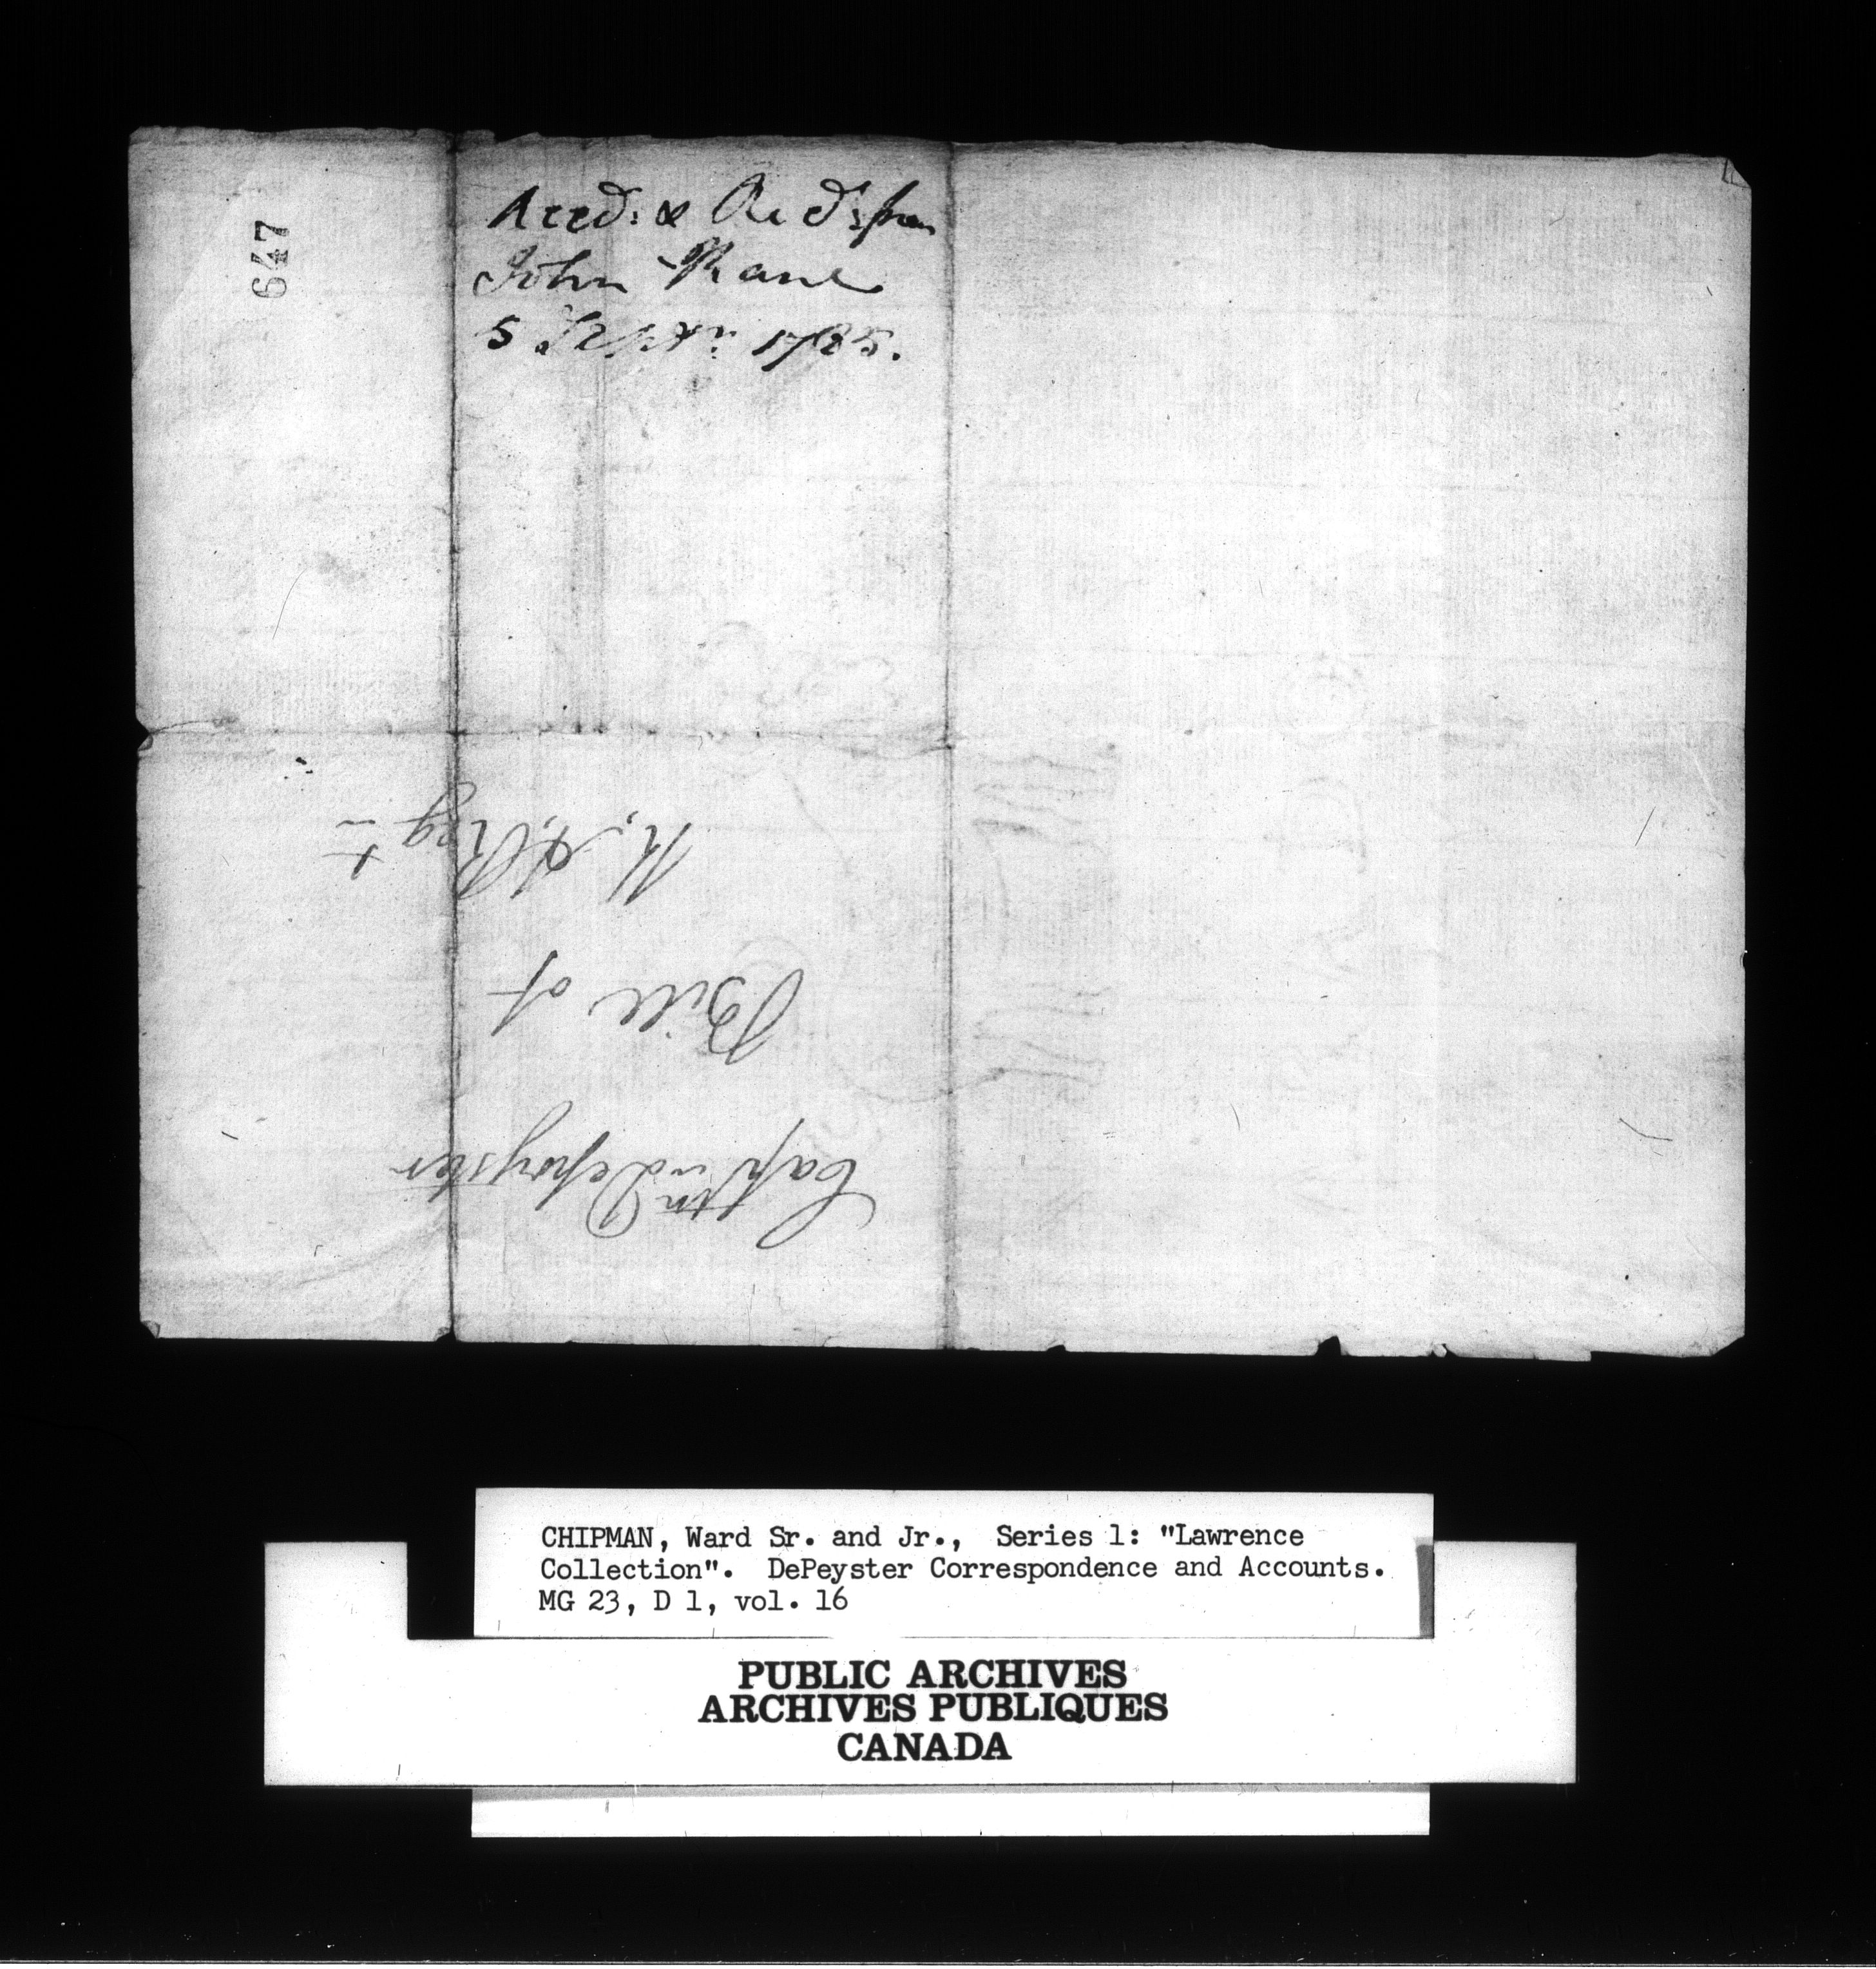 647
Accd: & Recd: from
John Kane
5 Septr: 1785.
Captn Depeyster
Bill of
N. Y. Regt
CHIPMAN, Ward Sr. and Jr., Series 1: "Lawrence
Collection". DePeyster Correspondence and Accounts.
MG 23, D 1, vol. 16
PUBLIC ARCHIVES
ARCHIVES PUBLIQUES
CANADA